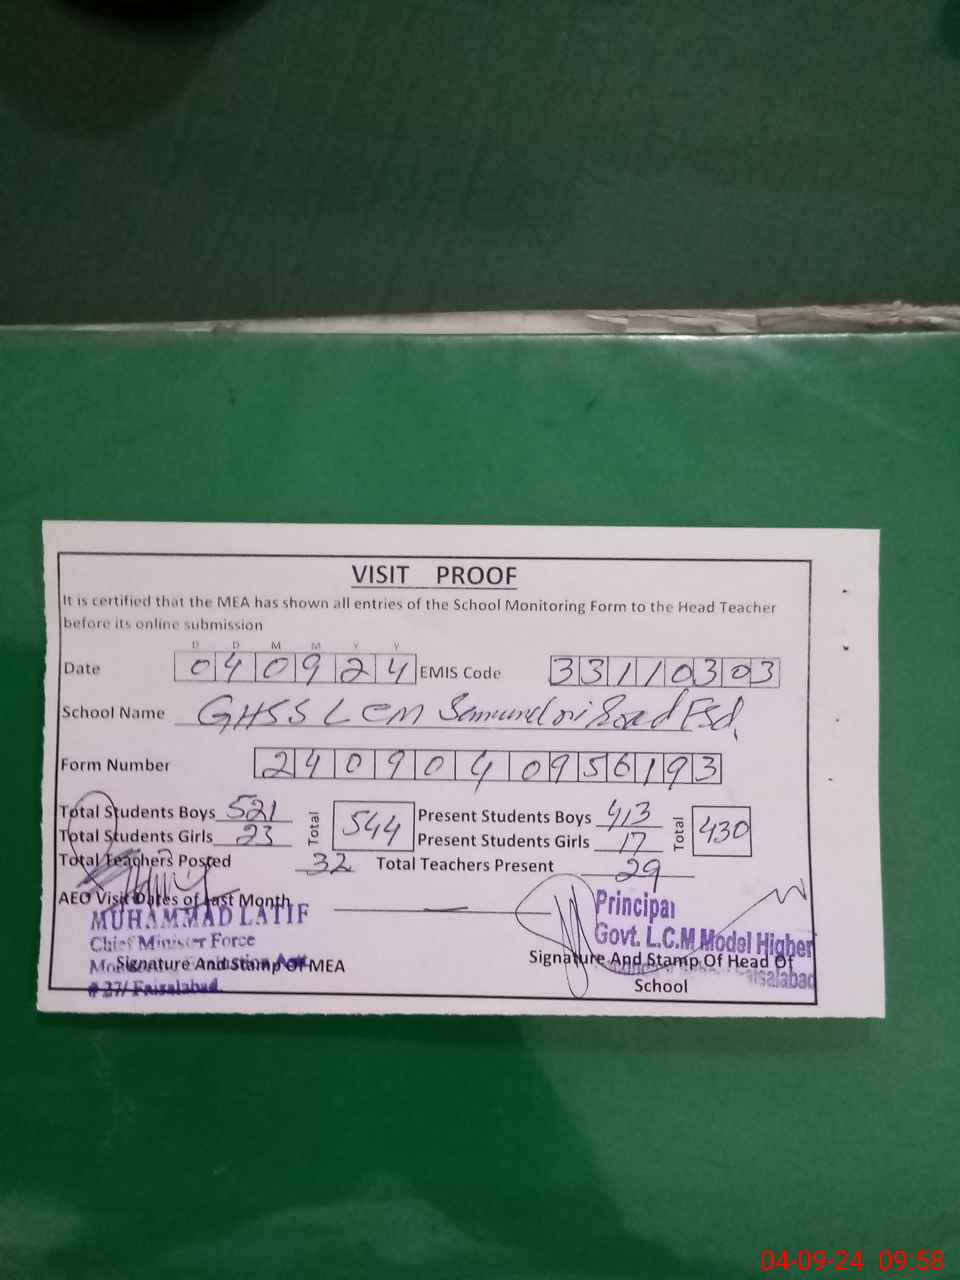 VISIT PROOF
It is certified that the MEA has shown all entries of the School Monitoring Form to the Head Teacher
before its online submission
D D M M Y Y
Date 040924 EMIS Code 33110303
School Name GHSS LCM Samundri Road Fsd
Form Number 2409040956193
Total Students Boys 521 Total 544 Present Students Boys 413 Total 430
Total Students Girls 23 Present Students Girls 17
Total Teachers Posted 32 Total Teachers Present 29
AEO Visit Dates of Last Month
MUHAMMAD LATIF
Chief Minister Force
# 27/ Faisalabad.
Signature And Stamp Of MEA
Principal
Govt. L.C.M Model Higher
Faisalabad
Signature And Stamp Of Head Of
School
04-09-24 09:58